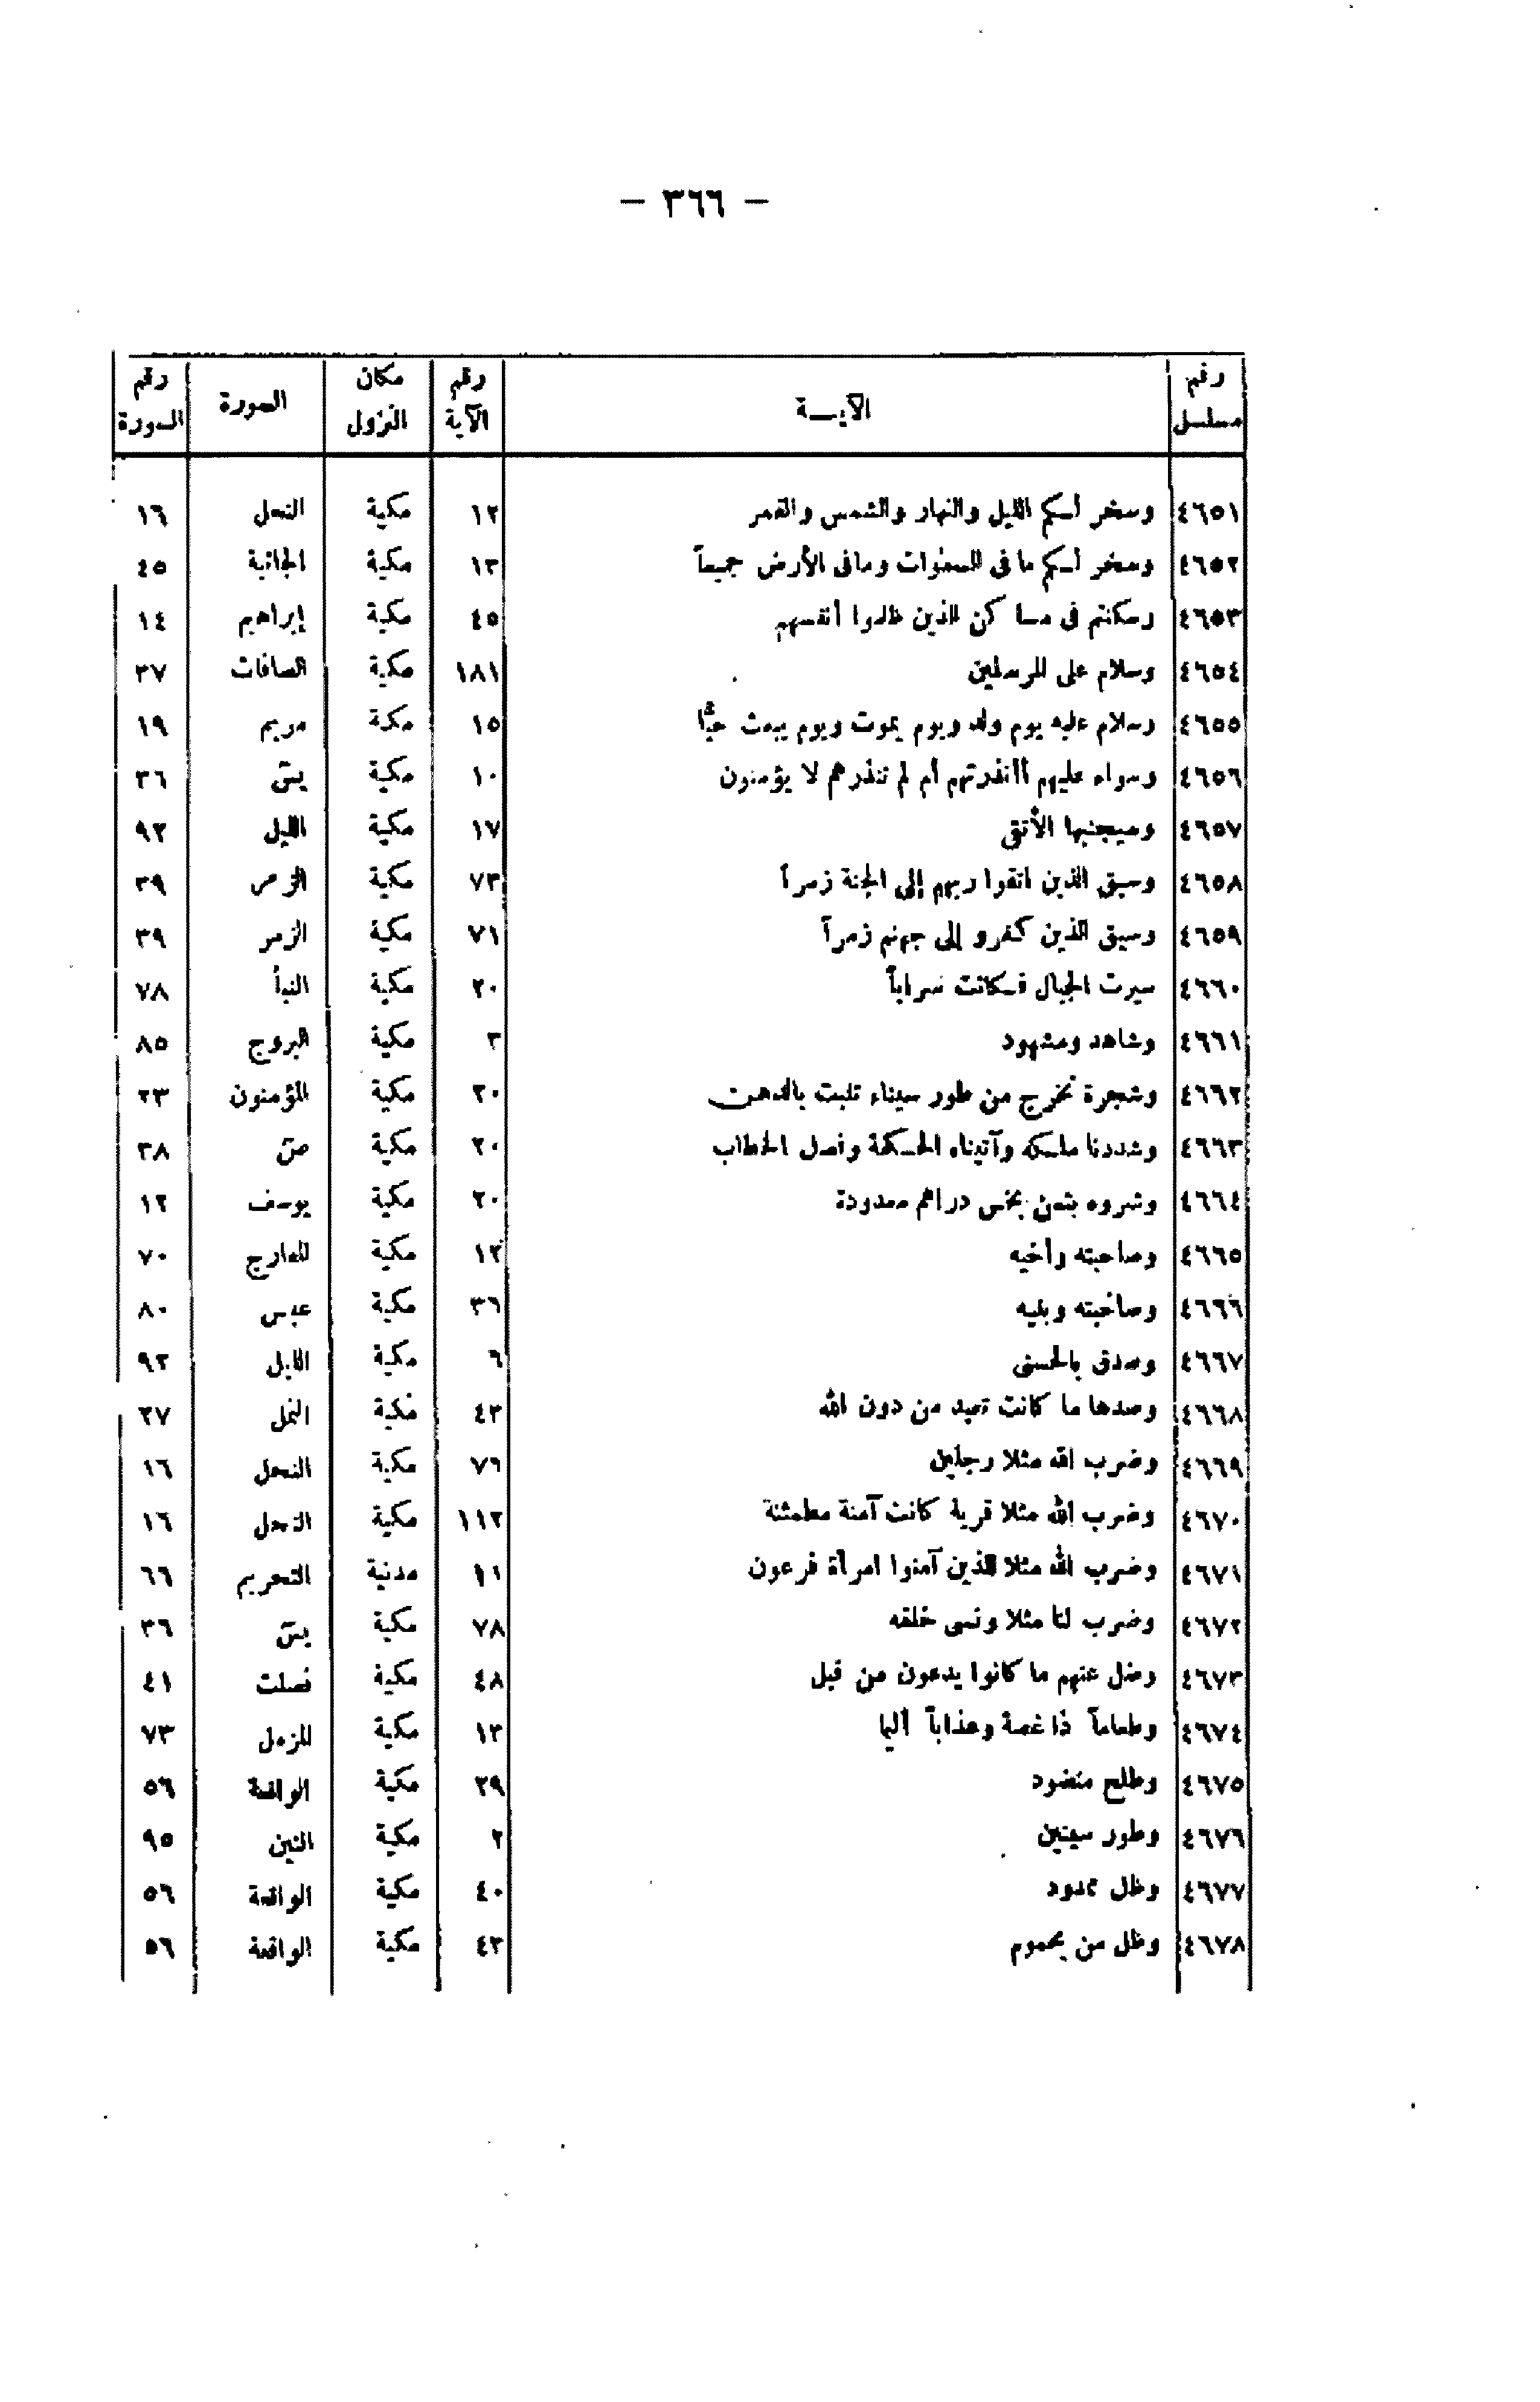 — ٣٦٦ —
رقم مسلسل | الآيـــة | رقم الآية | مكان النزول | السورة | رقم السورة
٤٦٥١ | وسخر لسكم الليل والنهار والشمس والقمر | ١٢ | مكية | النحل | ١٦
٤٦٥٢ | وسخر لسكم ما فى السموات وما فى الأرض جميعاً | ١٣ | مكية | الجاثية | ٤٥
٤٦٥٣ | وسكنتم فى مسا كن الذين ظلموا أنفسهم | ٤٥ | مكية | إبراهيم | ١٤
٤٦٥٤ | وسلام على المرسلين | ١٨١ | مكية | الصافات | ٣٧
٤٦٥٥ | وسلام عليه يوم ولد ويوم يموت ويوم يبعث حيًّا | ١٥ | مكية | مريم | ١٩
٤٦٥٦ | وسواء عليهم أأنذرتهم أم لم تنذرهم لا يؤمنون | ١٠ | مكية | يسّ | ٣٦
٤٦٥٧ | وسيجنبها الأتقى | ١٧ | مكية | الليل | ٩٢
٤٦٥٨ | وسيق الذين اتقوا ربهم إلى الجنة زمراً | ٧٣ | مكية | الزمر | ٣٩
٤٦٥٩ | وسيق الذين كفرو إلى جهنم زمراً | ٧١ | مكية | الزمر | ٣٩
٤٦٦٠ | سيرت الجبال فسكانت سراباً | ٢٠ | مكية | النبأ | ٧٨
٤٦٦١ | وشاهد ومشهود | ٣ | مكية | البروج | ٨٥
٤٦٦٢ | وشجرة تخرج من طور سيناء تنبت بالدهن | ٢٠ | مكية | المؤمنون | ٢٣
٤٦٦٣ | وشددنا ملسكه وآتيناه الحسكمة وفصل الخطاب | ٢٠ | مكية | صّ | ٣٨
٤٦٦٤ | وشروه بثمن بخس دراهم معدودة | ٢٠ | مكية | يوسف | ١٢
٤٦٦٥ | وصاحبته وأخيه | ١٢ | مكية | المعارج | ٧٠
٤٦٦٦ | وصاحبته وبنيه | ٣٦ | مكية | عبس | ٨٠
٤٦٦٧ | وصدق بالحسنى | ٦ | مكية | الليل | ٩٢
٤٦٦٨ | وصدها ما كانت تعبد من دون الله | ٤٣ | مكية | النمل | ٢٧
٤٦٦٩ | وضرب الله مثلا رجلين | ٧٦ | مكية | النحل | ١٦
٤٦٧٠ | وضرب الله مثلا قرية كانت آمنة مطمئنة | ١١٢ | مكية | النحل | ١٦
٤٦٧١ | وضرب الله مثلا للذين آمنوا امرأة فرعون | ١١ | مدنية | التحريم | ٦٦
٤٦٧٢ | وضرب لنا مثلا ونسى خلقه | ٧٨ | مكية | يسّ | ٣٦
٤٦٧٣ | وضل عنهم ما كانوا يدعون من قبل | ٤٨ | مكية | فصلت | ٤١
٤٦٧٤ | وطعاماً ذا غصة وعذاباً أليما | ١٣ | مكية | المزمل | ٧٣
٤٦٧٥ | وطلح منضود | ٢٩ | مكية | الواقعة | ٥٦
٤٦٧٦ | وطور سينين | ٢ | مكية | التين | ٩٥
٤٦٧٧ | وظل ممدود | ٤٠ | مكية | الواقعة | ٥٦
٤٦٧٨ | وظل من يحموم | ٤٣ | مكية | الواقعة | ٥٦